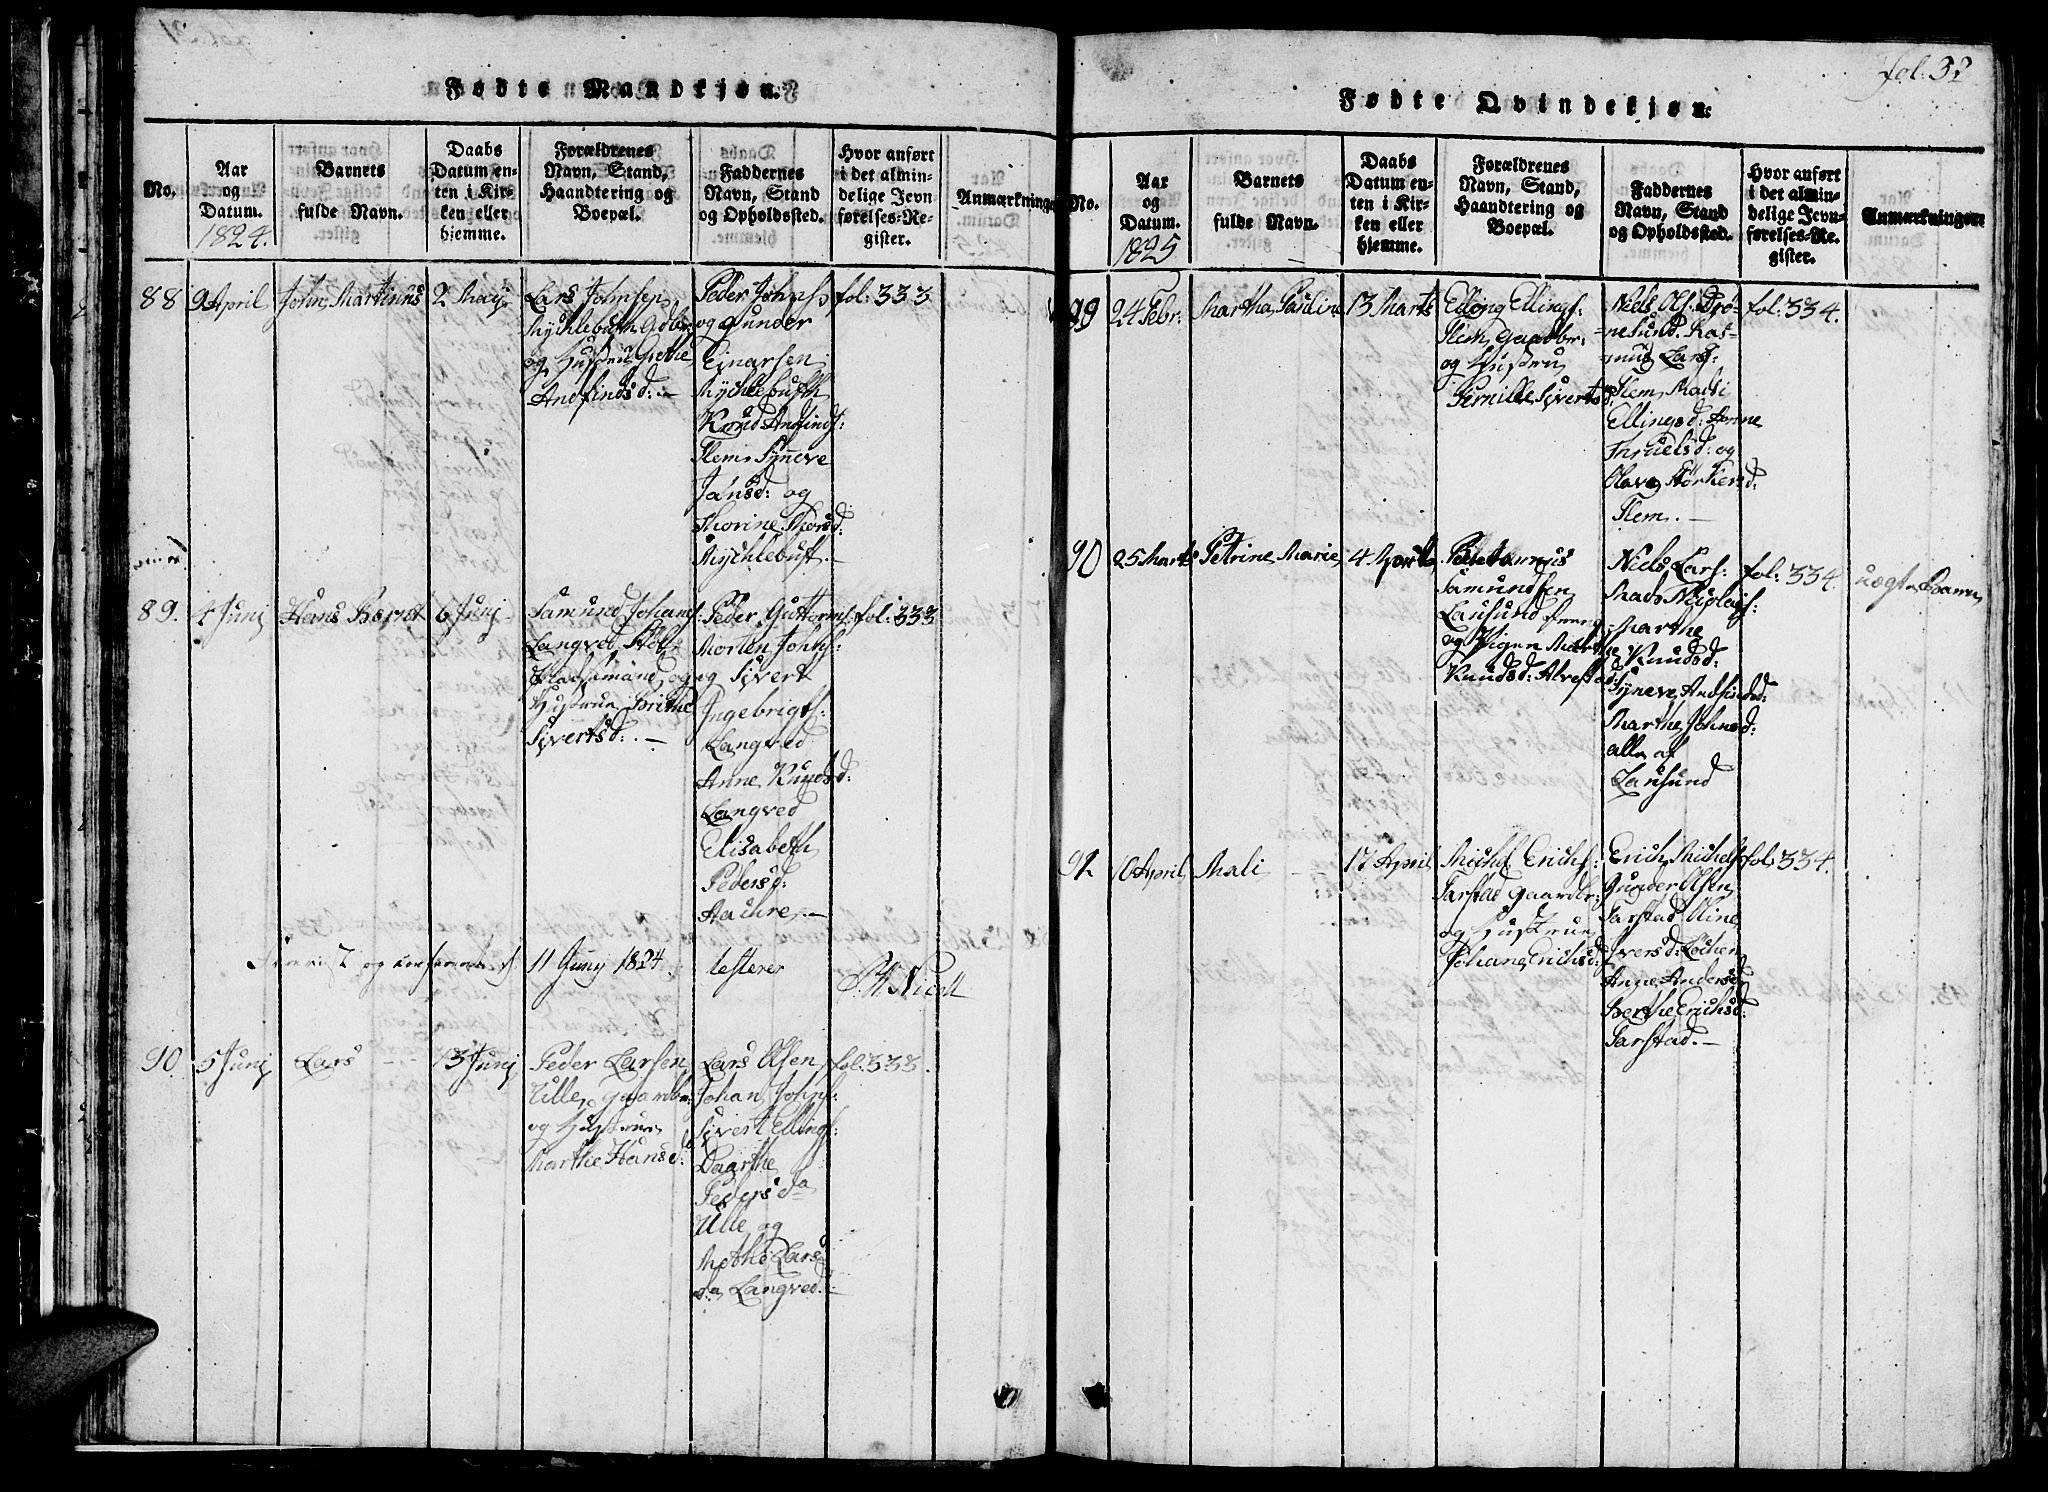 Fødte Mandkjøn.
No.
Aar og Datum.
1824.
Barnets fulde Navn.
Daabs Datum enten i Kirken eller hjemme.
Forældrenes Navn, Stand, Haandtering og Boepæl.
Faddernes Navn, Stand og Opholdssted.
Hvor anført i det almindelige Jevnførelses-Register.
Anmærkninger
88
9 April
John Martinus
2 Maj
Lars Johnsen
Mychlebusth Gdbr.
og Hustrue Grethe
Andfindsd: —
Peder Johns:
og Gunder
Einarsen
Mychlebusth
Knud Andfinds:
Flem, Synneve
Jansd: og
Thorine Thorsd:
Mychlebust. —
fol: 333
89.
4 Junj
Hans Bernt
6 Junj
Samund Johans:
Langved
Pladsmand og
Hustrue Brithe
Sivertsd: —
Peder Guttorms:
Morten Johns:
og Sivert
Ingebrigts:
Langved
Anne Knudsd:
Langved
Elisabeth
Pedersd:
Hachre. —
fol: 333
11 Juny 1824.
testerer
90
5 Junj
Lars
13 Junj
Peder Larsen
Ulle, Gaardbr:
og Hustrue
Marthe Hansd:
Lars Olsen,
Johan Johns:
Sivert Ellings:
Daarthe
Pedersda
Ulle og
Mathe Lars
da Langved. —
fol: 333.
fol: 32
Fødte Qvindekjøn.
No.
Aar og Datum.
1825
Barnets fulde Navn.
Daabs Datum enten i Kirken eller hjemme.
Forældrenes Navn, Stand, Haandtering og Boepæl.
Faddernes Navn, Stand og Opholdssted.
Hvor anført i det almindelige Jevnførelses-Register.
Anmærkninger
89
24 Febr:
Martha Pauline
13 Marts
Elling Ellings:
Flem Gaardbr:
og Hustrue
Pernille Sivertsd:
Niels Ols: Drø-
nesund. Ras-
mus Lars:
Flem, Madsi
Ellingsd: Anne
Truelsd: og
Olave Størkersd:
Flem. —
fol: 334.
90
25 Marts
Petrine Marie
4 April
Samundsen
Lausund
og Pigen Marthe
Knudsd: Alvestad
Niels Lars:
Mads Nicolays:
Marthe
Knudsd:
Syneve Andfindsd:
Marthe Johnsd:
alle af
Lausund
fol: 334.
uægte Barn
91
10 April
Mali
17 April
Michel Erichs:
Farstad Gaardbr:
og Hustrue
Johane Erichsd:
Erich Michels:
Gunder Olsen
Farstad Oline
Iversd: Lochen
Anne Andersd:
Berthe Erichsd:
Farstad. —
fol: 334.